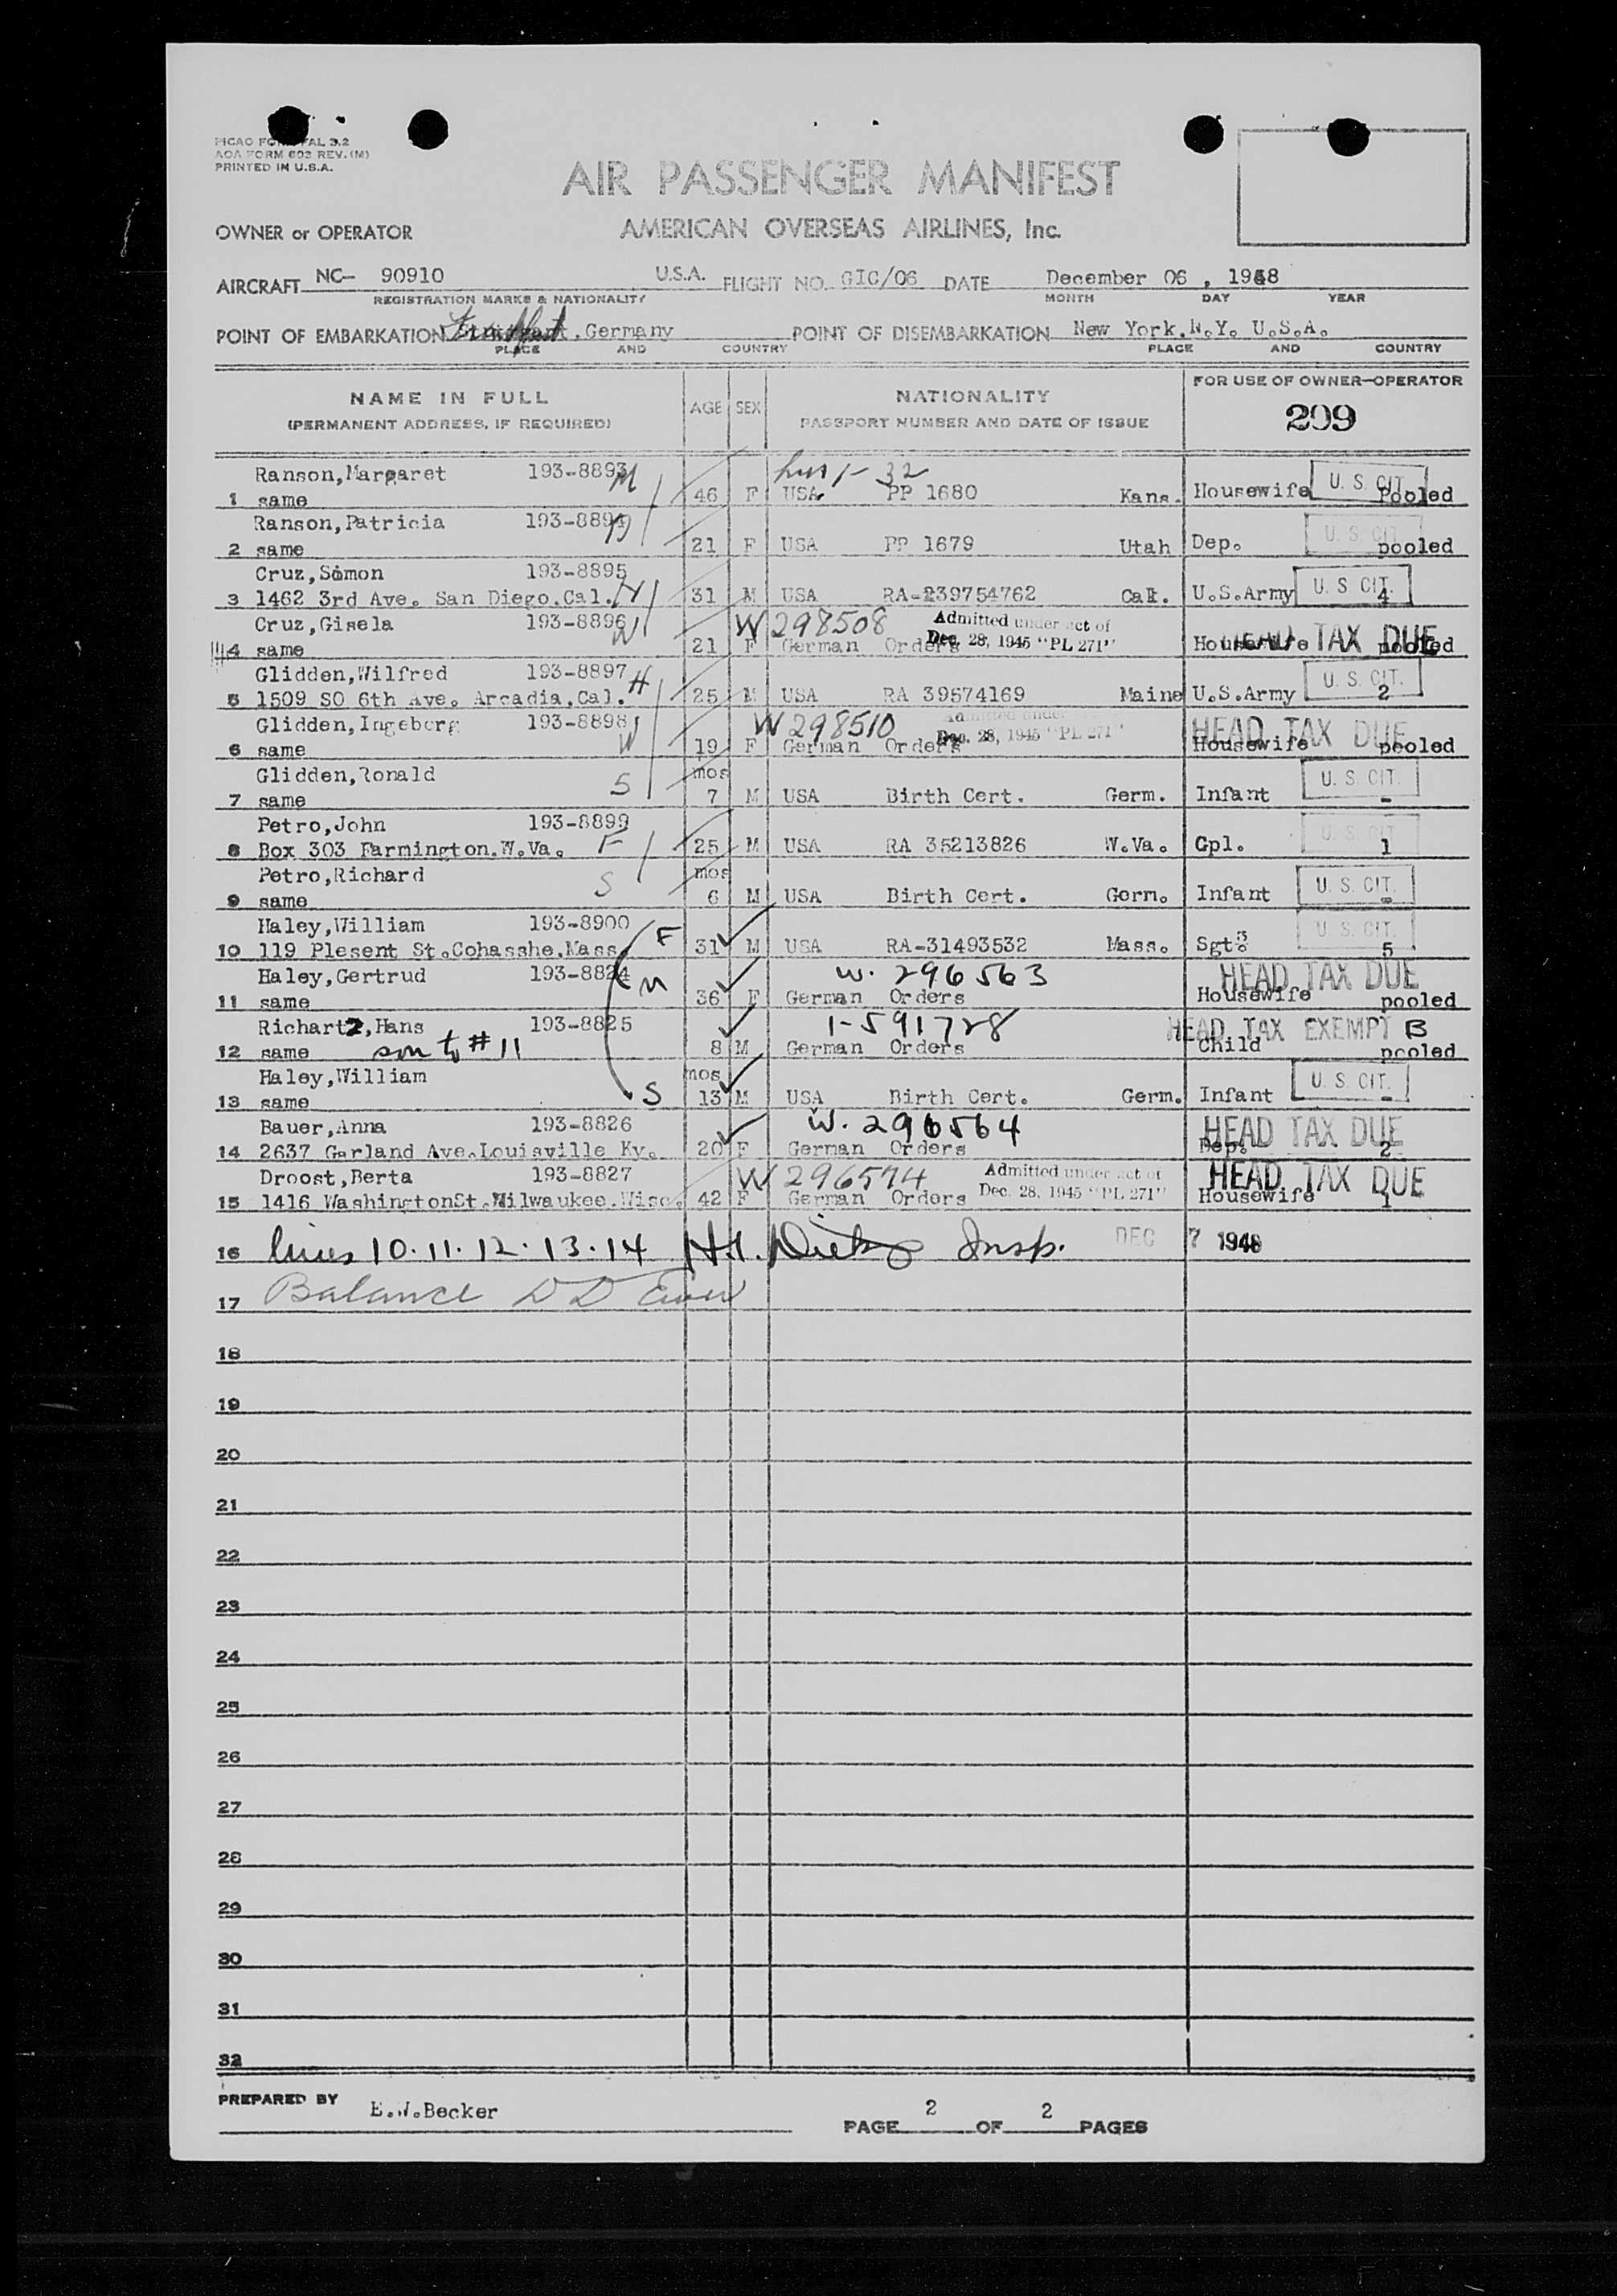 PICAO FORM FAL 3.2
AOA FORM 602 REV. (M)
PRINTED IN U.S.A.
AIR PASSENGER MANIFEST
OWNER or OPERATOR AMERICAN OVERSEAS AIRLINES, Inc.
AIRCRAFT NC- 90910 U.S.A. FLIGHT NO. GIG/06 DATE December 06, 1948
REGISTRATION MARKS & NATIONALITY MONTH DAY YEAR
POINT OF EMBARKATION , Germany POINT OF DISEMBARKATION New York, N.Y. U.S.A.
PLACE AND COUNTRY PLACE AND COUNTRY
NAME IN FULL AGE SEX NATIONALITY FOR USE OF OWNER-OPERATOR
(PERMANENT ADDRESS, IF REQUIRED) PASSPORT NUMBER AND DATE OF ISSUE 299
Ranson,Margaret 193-8893 M
1 same 46 F USA PP 1680 Kans. Housewife U. S. CIT. Pooled
Ranson,Patricia 193-8894 D
2 same 21 F USA PP 1679 Utah Dep. U. S. CIT. pooled
Cruz,Simon 193-8895
3 1462 3rd Ave. San Diego.Cal. H 31 M USA RA-239754762 Cal. U.S.Army U. S. CIT. 4
Cruz,Gisela 193-8896 W W 298508 Admitted under act of
4 same 21 F German Orders Dec. 28, 1945 "PL 271" Housewife HEAD TAX DUE pooled
Glidden,Wilfred 193-8897 H
5 1509 SO 6th Ave. Arcadia,Cal. 25 M USA RA 39574169 Maine U.S.Army U. S. CIT. 2
Glidden,Ingeborg 193-8898 W W 298510 Admitted under HEAD TAX DUE
6 same 19 F German Orders Dec. 28, 1945 "PL 271" Housewife pooled
Glidden,Ronald S mos
7 same 7 M USA Birth Cert. Germ. Infant U. S. CIT. -
Petro,John 193-8899 F
8 Box 303 Farmington.W.Va. 25 M USA RA 35213826 W.Va. Cpl. U. S. CIT. 1
Petro,Richard S mos
9 same 6 M USA Birth Cert. Germ. Infant U. S. CIT. -
Haley,William 193-8900 F
10 119 Plesent St.Cohasshe.Mass. 31 M USA RA-31493532 Mass. Sgt. 3 U. S. CIT. 5
Haley,Gertrud 193-8824 M W. 296563 HEAD TAX DUE
11 same 36 F German Orders Housewife pooled
Richartz,Hans 193-8825 1-591728 HEAD TAX EXEMPT B
12 same son to #11 8 M German Orders Child pooled
Haley,William mos
13 same S 13 M USA Birth Cert. Germ. Infant U. S. CIT. -
Bauer,Anna 193-8826 W. 296564 HEAD TAX DUE
14 2637 Garland Ave.Louisville Ky. 20 F German Orders Dep. 2
Droost,Berta 193-8827 W 296574 Admitted under act of HEAD TAX DUE
15 1416 WashingtonSt.Milwaukee.Wisc. 42 F German Orders Dec. 28, 1945 "PL 271" Housewife 1
16 lines 10.11.12.13.14 Insp. DEC 7 1948
17 Balance
18
19
20
21
22
23
24
25
26
27
28
29
30
31
32
PREPARED BY E.W.Becker
PAGE 2 OF 2 PAGES